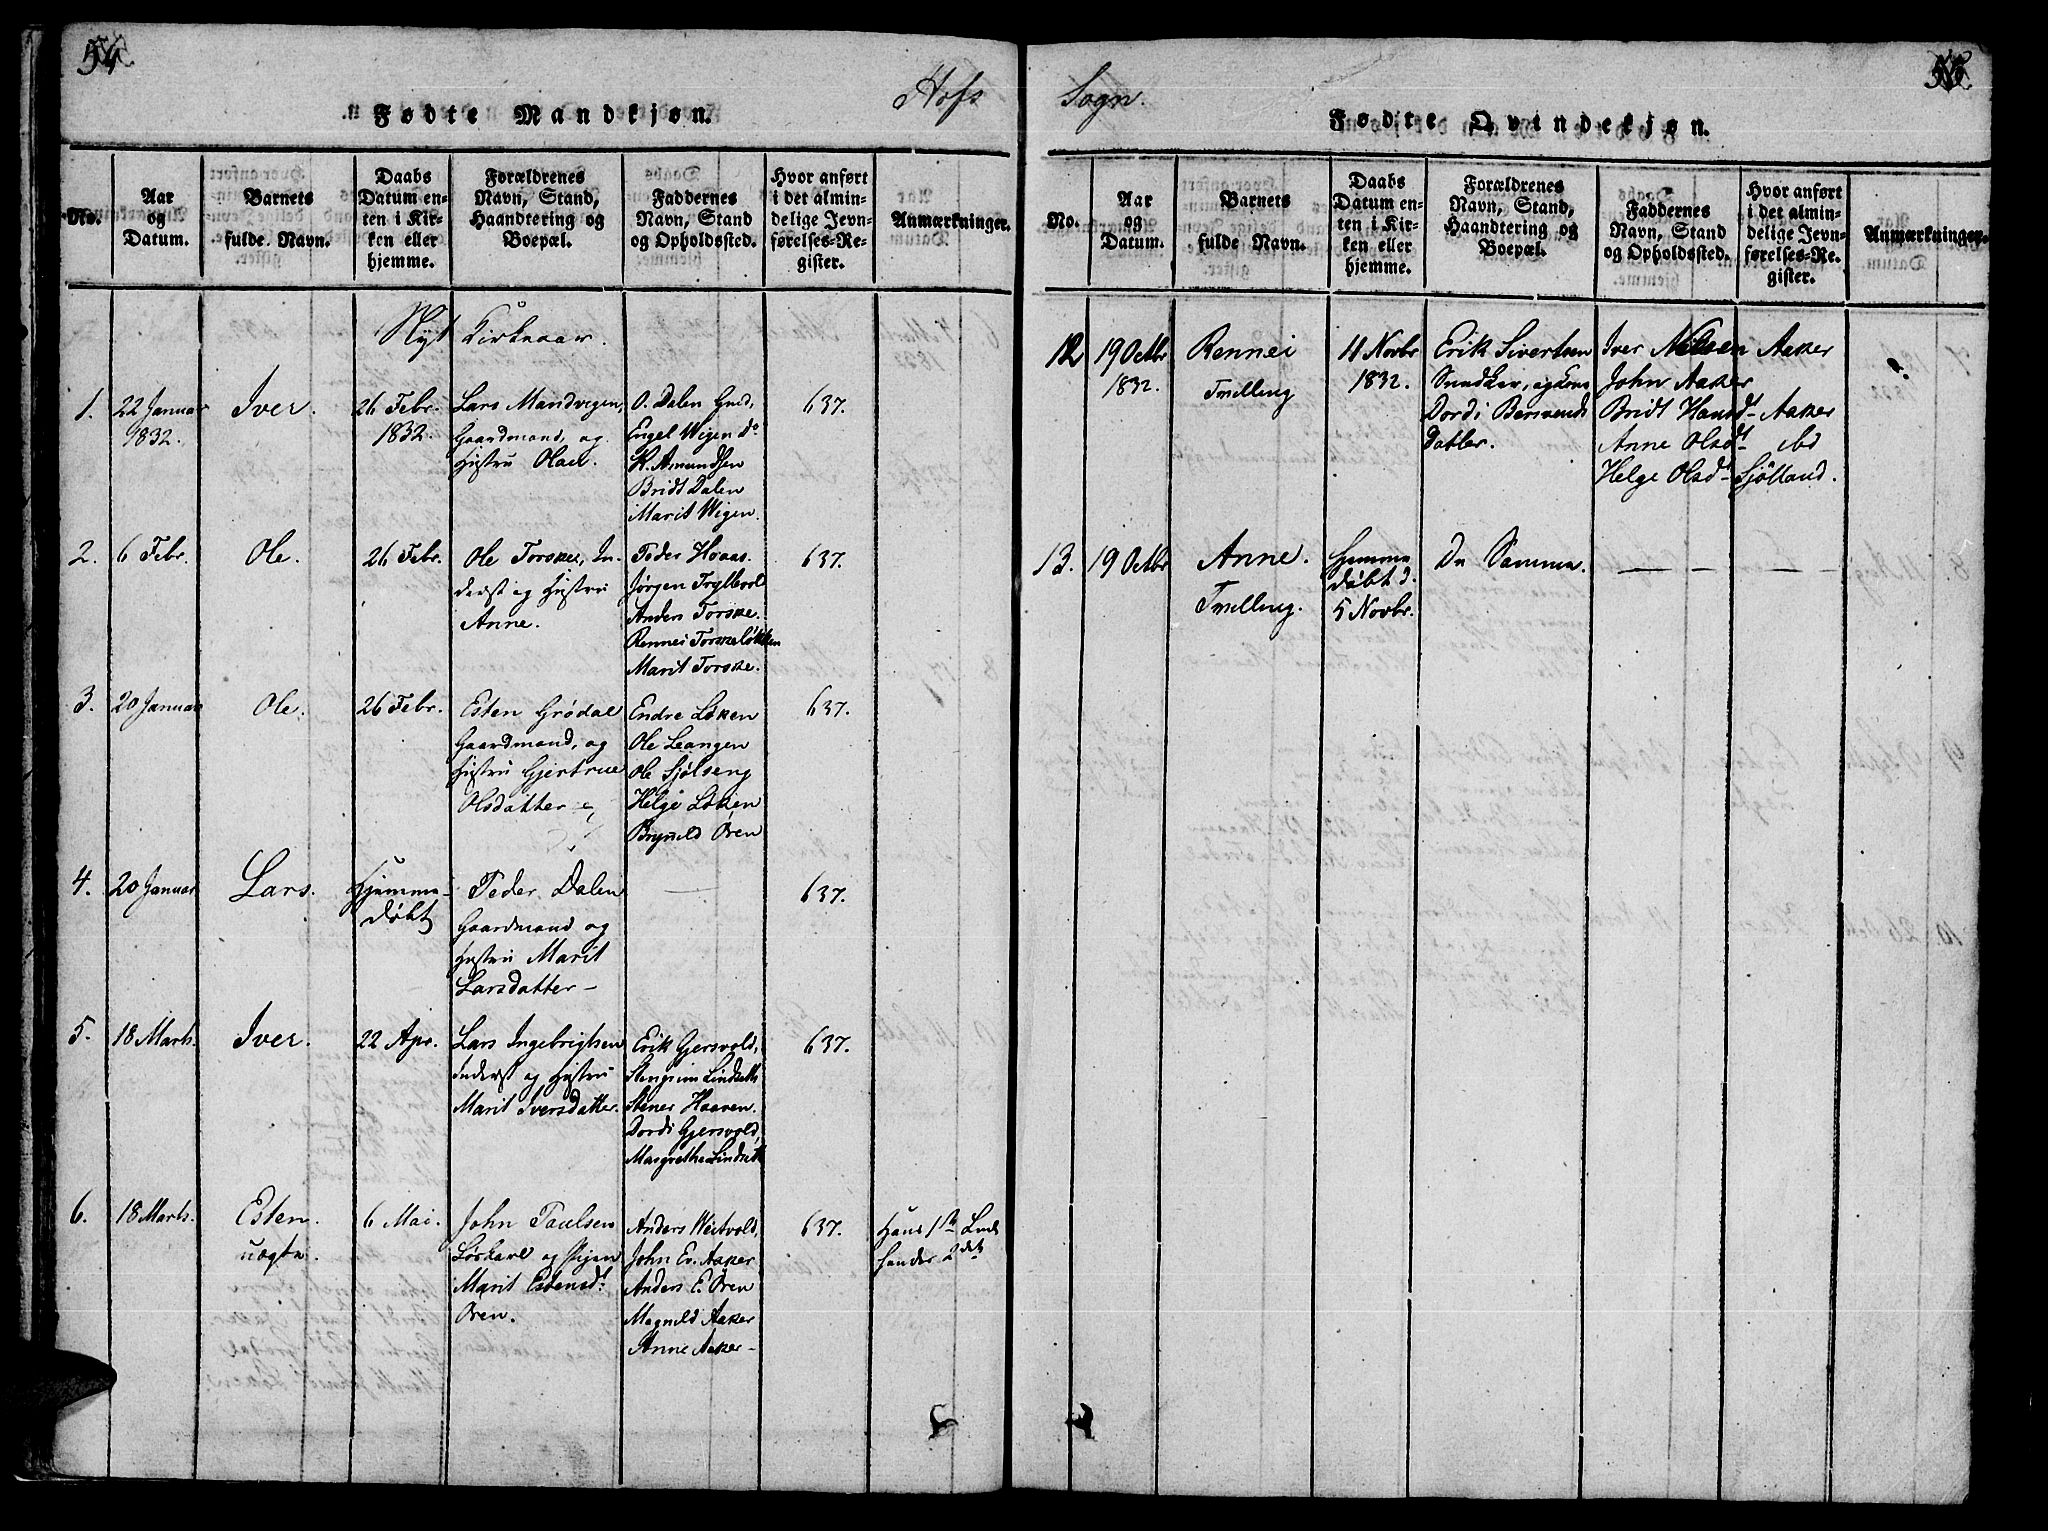 54
Hofs
Fødte Mandkjøn.
No.
Aar
og
Datum.
Barnets
fulde Navn.
Daabs
Datum en-
ten i Kir-
ken eller
hjemme.
Forældrenes
Navn, Stand,
Haandtering og
Boepæl.
Faddernes
Navn, Stand
og Opholdssted.
Hvor anført
i det almin-
delige Jevn-
førelses-Re-
gister.
Anmærkninger.
Nyt Kirkeaar.
1.
22 Januar
1832.
Iver.
26 Febr.
1832.
Lars Mandvigen,
Gaardmand, og
Hustru Olae.
O. Dalen Grd,
Engel Wigen Do
K. Amundsen
Bridt Dalen
Marit Wigen.
637.
2.
6 Febr.
Ole.
26 Febr.
Ole Torske, In-
derst og Hustru
Anne.
Peder Hoaas.
Jørgen Tryllevol
Anders Torske.
Rennei Torskeløkken
Marit Torske.
637.
3.
20 Januar
Ole.
26 Febr.
Esten Grødal
Gaardmand, og
Hustru Gjertrue
Olsdatter
Endre Løken
Ole Leangen
Ole Sjølseng
Helge Løken
Bryneld Ören
637.
4.
20 Januar
Lars.
Hjemme-
døbt
Peder Dalen
Gaardmand og
Hustru Marit
Larsdatter -
637.
5.
18 Marts.
Iver.
22 Apr.
Lars Ingebrigtsen
Inderst og Hustru
Marit Iversdatter.
Erik Gjersvold,
Stengrim Lindseth
Stener Haaven.
Dordi Gjersvold,
Margrethe Lindseth
637.
6.
18 Marts.
Esten.
uægte.
6 Mai.
John Paulsen
Løskarl og Pigen
Marit Estensdt
Ören.
Anders Weitvold,
John Er. Aaker
Anders E. Ören
Magnild Aaker
Anne Aaker -
637.
Hans 1ste Leier
hendes 2det
55
Sogn.
Fødte Qvindekjøn.
No.
Aar
og
Datum.
Barnets
fulde Navn.
Daabs
Datum en-
ten i Kir-
ken eller
hjemme.
Forældrenes
Navn, Stand,
Haandtering og
Boepæl.
Faddernes
Navn, Stand
og Opholdssted.
Hvor anført
i det almin-
delige Jevn-
førelses-Re-
gister.
Anmærkninger.
12
19 Octbr
1832.
Rennei
Tvilling
11 Novbr
1832.
Erik Sivertsen
og Kone
Dordi Bersvends
datter.
Iver Nilsen Aaker
John Aaker
Bridt Hansdt - Aaker
Anne Olsdt - ibd
Helge Olsdt - Sjölland.
13.
19 Octbr
Anne.
Tvilling.
Hjemme
døbt d.
5 Novbr.
De Samme.